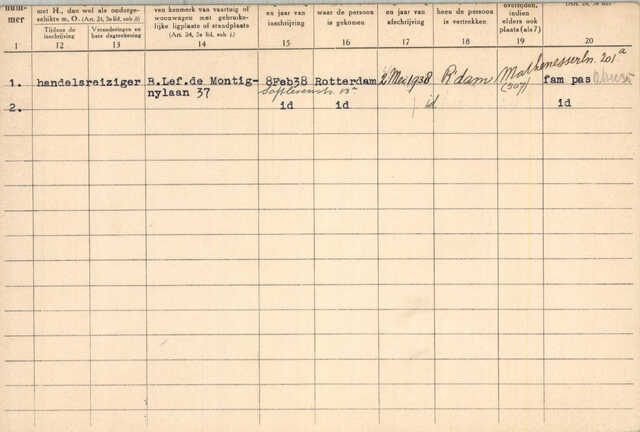 num-
mer
met H., dan wel als onderge-
schikte m, O. (Art. 24, 3e lid, sub h.)
Tijdens de
inschrijving
Veranderingen en
hare dagteekening
ven kenmerk van vaartuig of
woonwagen met gebruike-
lijke ligplaats of standplaats
(Art. 24, 3e lid, sub i.)
en jaar van
inschrijving
waar de persoon
is gekomen
en jaar van
afschrijving
heen de persoon
is vertrokken
overlijden,
indien
elders ook
plaats (als 7)
1 12 13 14 15 16 17 18 19 20
1. handelsreiziger B.Lef.de Montig- 8Feb38 Rotterdam 2 Mei 1938 R'dam Mathenesserln. 201a fam pas
nylaan 37 Saftlevenstr. 15 (507)
2. id id id id